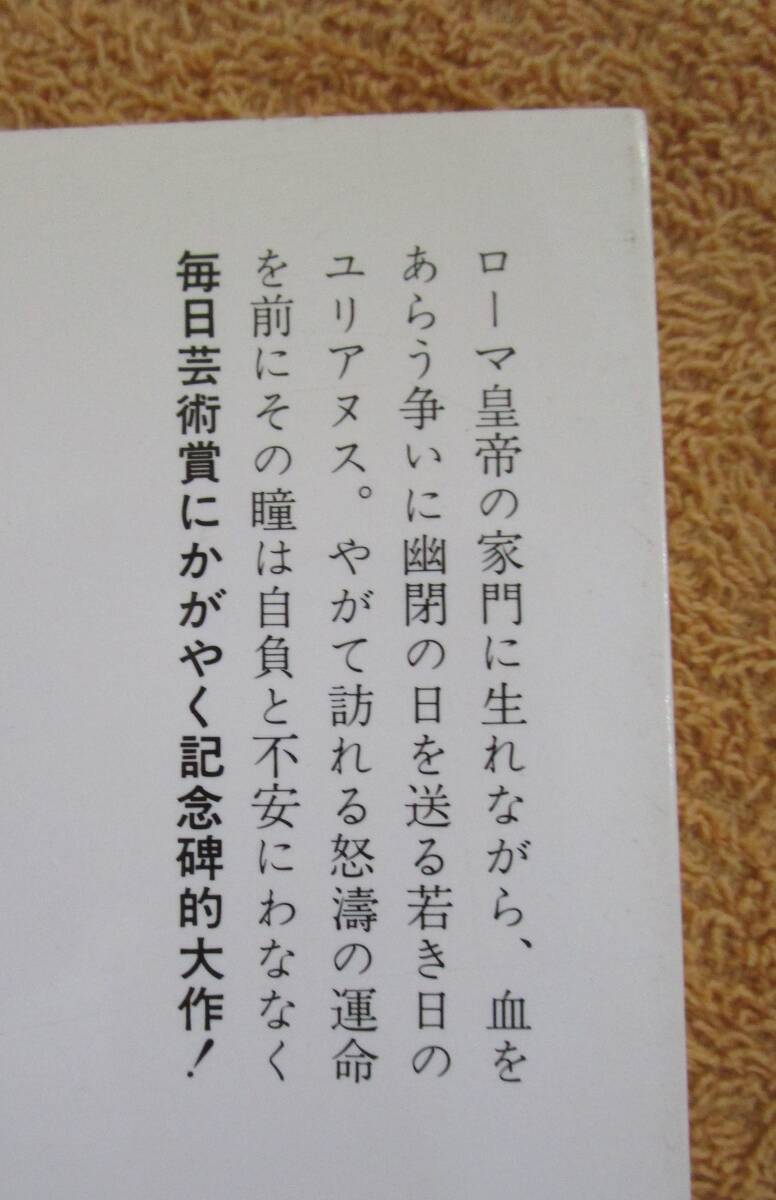 ローマ皇帝の家門に生れながら、血を
あらう争いに幽閉の日を送る若き日の
ユリアヌス。やがて訪れる怒濤の運命
を前にその瞳は自負と不安にわななく
毎日芸術賞にかがやく記念碑的大作！